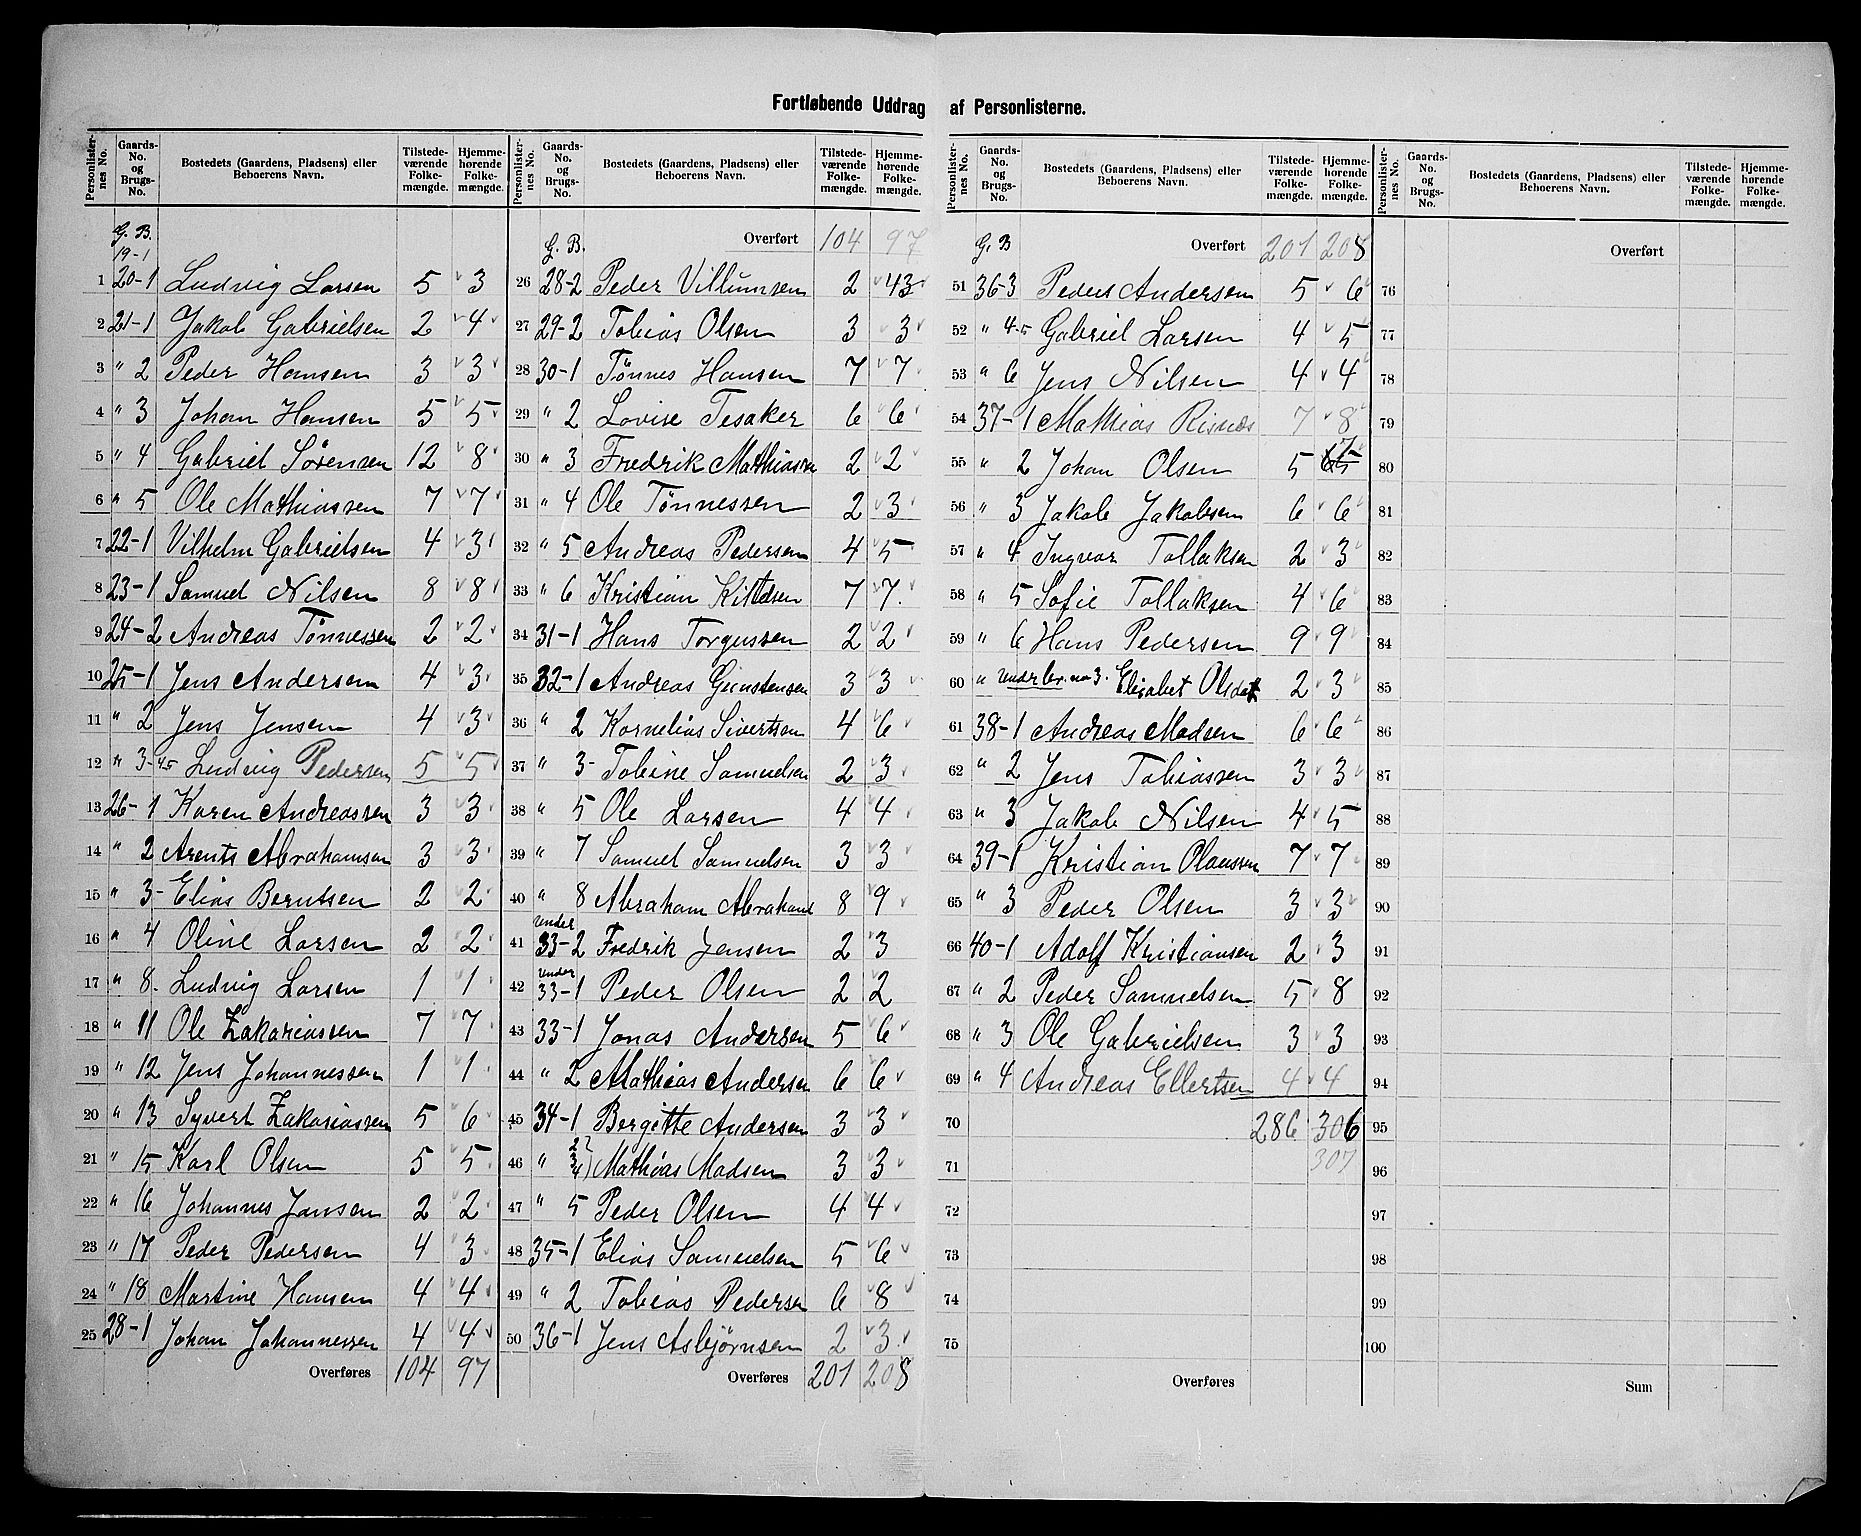 Fortløbende Uddrag af Personlisterne.
Personlisternes No. | Gaards-No. og Brugs-No. | Bostedets (Gaardens, Pladsens) eller Beboerens Navn. | Tilstedeværende Folkemængde. | Hjemmehørende Folkemængde.
G. B.
19-1
1 20-1 Ludvig Larsen 5 3
2 21-1 Jakob Gabrielsen 2 4
3 " 2 Peder Hansen 3 3
4 " 3 Johan Hansen 5 5
5 " 4 Gabriel Sørensen 12 8
6 " 5 Ole Mathiassen 7 7
7 22-1 Vilhelm Gabrielsen 4 3
8 23-1 Samuel Nilsen 8 8
9 24-2 Andreas Tønnessen 2 2
10 25-1 Jens Andersen 4 3
11 " 2 Jens Jensen 4 3
12 " 3-4.5 Ludvig Pedersen 5 5
13 26-1 Karen Andreassen 3 3
14 " 2 Arents Abrahamsen 3 3
15 " 3- Elias Berntsen 2 2
16 " 4 Oline Larsen 2 2
17 " 8. Ludvig Larsen 1 1
18 " 11 Ole Zakariassen 7 7
19 " 12 Jens Johannessen 1 1
20 " 13 Syvert Zakariassen 5 6
21 " 15 Karl Olsen 5 5
22 " 16 Johannes Jansen 2 2
23 " 17 Peder Pedersen 4 3
24 " 18 Martine Hansen 4 4
25 28-1 Johan Johannessen 4 4
Overføres 104 97
Personlisternes No. | Gaards-No. og Brugs-No. | Bostedets (Gaardens, Pladsens) eller Beboerens Navn. | Tilstedeværende Folkemængde. | Hjemmehørende Folkemængde.
G. B. Overført 104 97
26 28-2 Peder Villumsen 2 43
27 29-2 Tobias Olsen 3 3
28 30-1 Tønnes Hansen 7 7
29 " 2 Lovise Tesaker 6 6
30 " 3 Fredrik Mathiassen 2 2
31 " 4 Ole Tønnessen 2 3
32 " 5 Andreas Pedersen 4 5
33 " 6 Kristian Kittelsen 7 7
34 31-1 Hans Torgussen 2 2
35 32-1 Andreas Gunstensen 3 3
36 " 2 Kornelius Sivertsen 4 6
37 " 3- Tobine Samuelsen 2 3
38 " 5 Ole Larsen 4 4
39 " 7 Samuel Samuelsen 3 3
40 " 8 Abraham Abrahams 8 9
41 under 33-2 Fredrik Jensen 2 3
42 under 33-1 Peder Olsen 2 2
43 33-1 Jonas Andersen 5 6
44 " 2 Mathias Andersen 6 6
45 34-1 Bergitte Andersen 3 3
46 " 2 3 4) Mathias Madsen 3 3
47 " 5 Peder Olsen 4 4
48 35-1 Elias Samuelsen 5 6
49 " 2 Tobias Pedersen 6 8
50 36-1 Jens Asbjørnsen 2 3
Overføres 201 208
Personlisternes No. | Gaards-No. og Brugs-No. | Bostedets (Gaardens, Pladsens) eller Beboerens Navn. | Tilstedeværende Folkemængde. | Hjemmehørende Folkemængde.
G. B Overført 201 208
51 36-3 Peder Andersen 5 6
52 " 4-5 Gabriel Larsen 4 5
53 " 6 Jens Nilsen 4 4
54 37-1 Mathias Risnes 7 8
55 " 2 Johan Olsen 5 7
56 " 3 Jakob Jakobsen 6 6
57 " 4 Ingvar Tallaksen 2 3
58 " 5 Sofie Tallaksen 4 6
59 " 6 Hans Pedersen 9 9
60 " under br. no 3. Elisabet Olsdatt 2 3
61 38-1 Andreas Madsen 6 6
62 " 2 Jens Tobiassen 3 3
63 " 3 Jakob Nilsen 4 5
64 39-1 Kristian Olaussen 7 7
65 " 3 Peder Olsen 3 3
66 40-1 Adolf Kristiansen 2 3
67 " 2 Peder Samuelsen 5 8
68 " 3 Ole Gabrielsen 3 3
69 " 4 Andreas Ellertsen 4 4
70 286 306
71 307
72
73
74
75
Overføres
Personlisternes No. | Gaards-No. og Brugs-No. | Bostedets (Gaardens, Pladsens) eller Beboerens Navn. | Tilstedeværende Folkemængde. | Hjemmehørende Folkemængde.
Overført
76
77
78
79
80
81
82
83
84
85
86
87
88
89
90
91
92
93
94
95
96
97
98
99
100
Sum